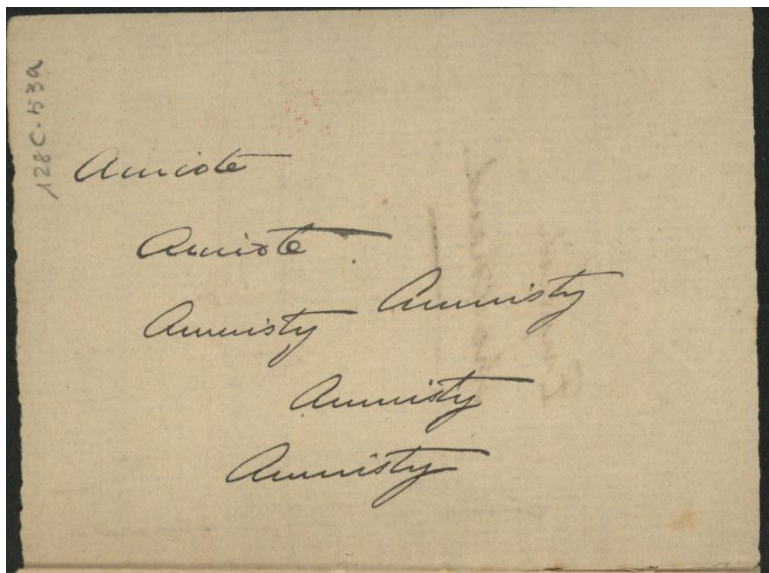 128C.53a
Amicote
Amicote.
Amnisty Amnisty
Amnisty
Amnisty